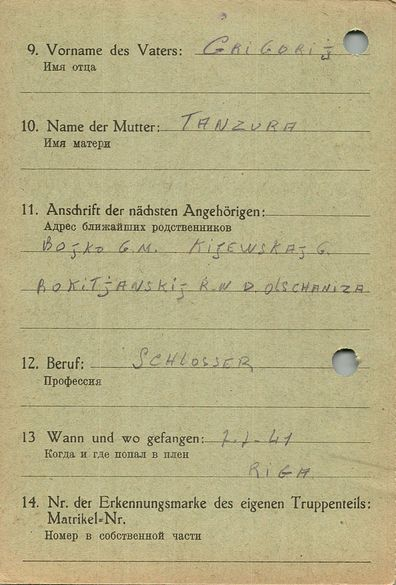 9. Vorname des Vaters: GRiGORij
Имя отца
10. Name der Mutter: TANZURA
Имя матери
11. Anschrift der nächsten Angehörigen:
Адрес ближайших родственников
BOjKO G.M. KIJEWSKAj G.
ROKiTjANSKij R.N D. OlSCHANiZA
12. Beruf: SCHlOSSER
Профессия
13 Wann und wo gefangen: 7.7-41
Когда и где попал в плен
RiGA
14. Nr. der Erkennungsmarke des eigenen Truppenteils:
Matrikel=Nr.
Номер в собственной части